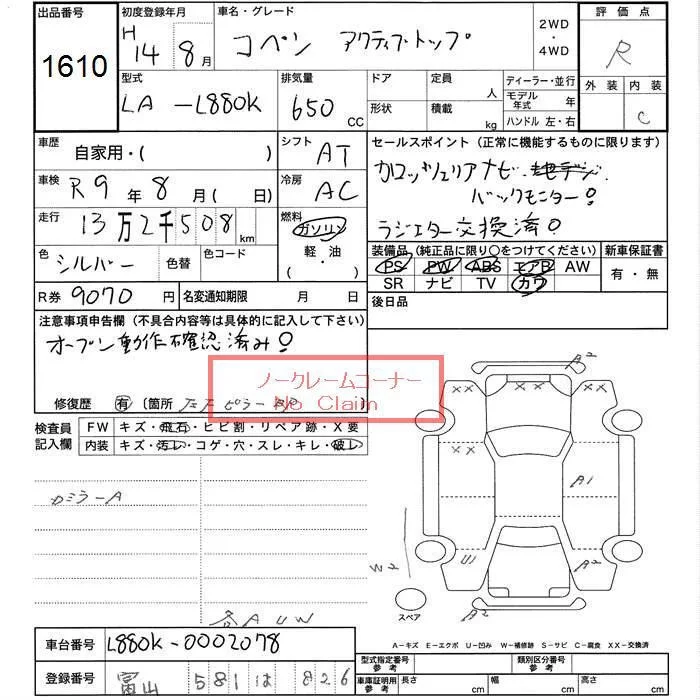 出品番号
1610
初度登録年月
H 14年 8月
車名・グレード
コペン アクティブトップ
2WD
・
4WD
評価点
R
外装 内装
C
型式
LA-L880K
排気量
650 CC
ドア
形状
定員 人
積載 kg
ディーラー・並行
モデル年式 年
ハンドル 左・右
車歴
自家用・( )
シフト
AT
車検
R9年 8月(日)
冷房
AC
走行
13万2千508km
燃料
ガソリン
軽・油
( ・ )
色
シルバー
色替
色コード
R券 9070円
名変通知期限 月 日
セールスポイント(正常に機能するものに限ります)
カロッツェリアナビ 地デジ
バックモニター!
ラジエター交換済!
装備品(純正品に限り○をつけてください)
PS PW ABS エアB AW
SR ナビ TV カワ
新車保証書
有・無
後日品
注意事項申告欄(不具合内容等は具体的に記入して下さい)
オープン動作確認済み!
ノークレームコーナー
No Claim
修復歴 有 〔箇所 ピラー 〕
検査員
記入欄
FW キズ・飛石・ヒビ割・リペア跡・X要
内装 キズ・汚レ・コゲ・穴・スレ・キレ・破レ
カミラーA
各AUW
A2
XX XX
XX
A1
U1
A2
W2
A2
スペア
A-キズ E-エクボ U-凹み W-補修跡 S-サビ C-腐食 XX-交換済
車台番号 L880K-0002078
登録番号 富山 581 は 826
型式指定番号
参考
類別区分番号
参考
車庫証明用
参考
長さ cm
幅 cm
高さ cm